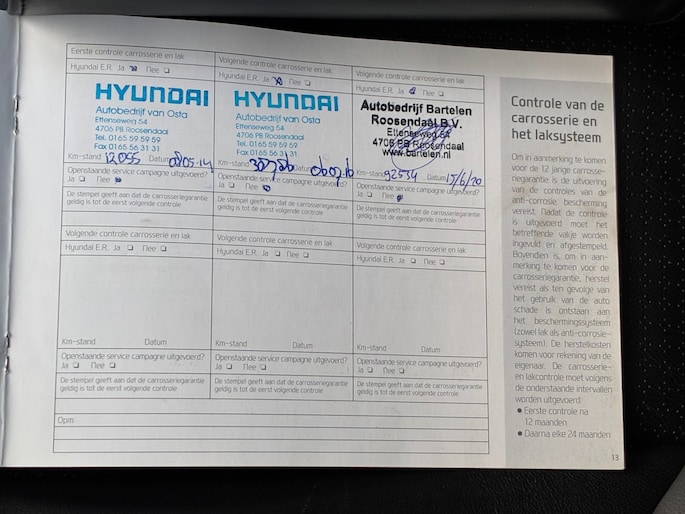 Eerste controle carrosserie en lak
Hyundai E.R. Ja Nee
HYUNDAI
Autobedrijf van Osta
Ettenseweg 54
4706 PB Roosendaal
Tel. 0165 59 59 59
Fax 0165 56 31 31
Km-stand 12055 Datum 08.05.14
Openstaande service campagne uitgevoerd?
Ja Nee
De stempel geeft aan dat de carrosseriegarantie
geldig is tot de eerst volgende controle
Volgende controle carrosserie en lak
Hyundai E.R. Ja Nee
HYUNDAI
Autobedrijf van Osta
Ettenseweg 54
4706 PB Roosendaal
Tel. 0165 59 59 59
Fax 0165 56 31 31
Km-stand Datum
Openstaande service campagne uitgevoerd?
Ja Nee
De stempel geeft aan dat de carrosseriegarantie
geldig is tot de eerst volgende controle
Volgende controle carrosserie en lak
Hyundai E.R. Ja Nee
Autobedrijf Bartelen
Roosendaal B.V.
Ettenseweg 54
4706 PB Roosendaal
www.bartelen.nl
Km-stand 92534 Datum 15/6/20
Openstaande service campagne uitgevoerd?
Ja Nee
De stempel geeft aan dat de carrosseriegarantie
geldig is tot de eerst volgende controle
Volgende controle carrosserie en lak
Hyundai E.R. Ja Nee
Km-stand Datum
Openstaande service campagne uitgevoerd?
Ja Nee
De stempel geeft aan dat de carrosseriegarantie
geldig is tot de eerst volgende controle
Volgende controle carrosserie en lak
Hyundai E.R. Ja Nee
Km-stand Datum
Openstaande service campagne uitgevoerd?
Ja Nee
De stempel geeft aan dat de carrosseriegarantie
geldig is tot de eerst volgende controle
Volgende controle carrosserie en lak
Hyundai E.R. Ja Nee
Km-stand Datum
Openstaande service campagne uitgevoerd?
Ja Nee
De stempel geeft aan dat de carrosseriegarantie
geldig is tot de eerst volgende controle
Opm:
Controle van de
carrosserie en
het laksysteem
Om in aanmerking te komen
voor de 12 jarige carrosse-
riegarantie is de uitvoering
van de controles van de
anti-corrosie bescherming
vereist. Nadat de controle
is uitgevoerd moet het
betreffende vakje worden
ingevuld en afgestempeld.
Bovendien is, om in aan-
merking te komen voor de
carrosseriegarantie, herstel
vereist als ten gevolge van
het gebruik van de auto
schade is ontstaan aan
het beschermingssysteem
(zowel lak als anti-corrosie-
systeem). De herstelkosten
komen voor rekening van de
eigenaar. De carrosserie-
en lakcontrole moet volgens
de onderstaande intervallen
worden uitgevoerd:
● Eerste controle na
12 maanden
● Daarna elke 24 maanden
13